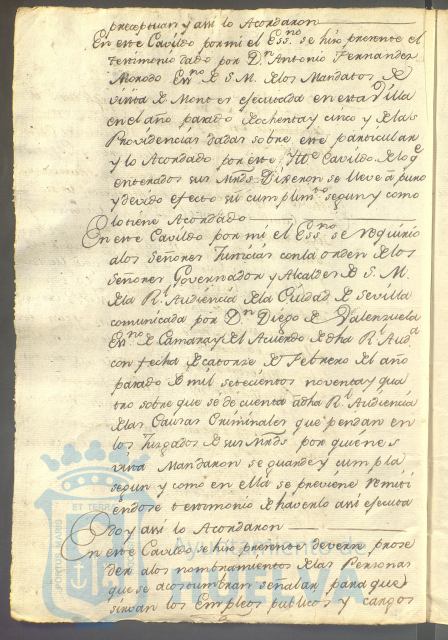 preceptuan y assi lo Acordaron
En este Cavildo por mi el Essno se hizo presente el
testimonio dado por Dn Antonio Fernandez
Morodo Esno de S.M. de los Mandatos de
visita de Montes ejecutada en esta Villa
en el año pasado de ochenta y cinco y de las
Providencias dadas sobre este particular
y lo Acordado por este Itte Cavildo de lo qe
enterados sus Mrds Dixeron se lleve a puro
y devido efecto su cumplimto segun y como
lo tiene Acordado
En este Cavildo por mi el Essno se requirio
a los Señores Justicias con la orden de los
Señores Governador y Alcaldes de S. M.
de la Rl Audiencia de la Ciudad de Sevilla
comunicada por Dn Diego de Valenzuela
Esno de Camara y del Acuerdo de dha Rl Auda
con fecha de catorze de Febrero del año
pasado de mil setecientos noventa y qua
tro sobre que se de cuenta a dha Rl Audiencia
de las Causas Criminales que pendan en
los Juzgados de sus Mrds por quienes
vista Mandaron se guarde y cumpla
segun y como en ella se previene remiti
endose testimonio de haverlo assi ejecuta
do y assi lo Acordaron
En este Cavildo se hizo presente deverse prose
der a los nombramientos de las Personas
que se acostumbran señalar para que
sirvan los Empleos publicos y cargos
PORTUS MARIS ET TERRAE
Ayuntamiento de